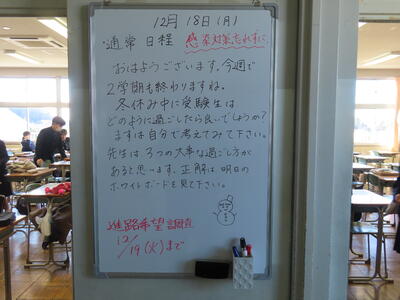 12月 18日(月)
・通常日程 感染対策忘れずに
おはようございます。今週で
2学期も終わりますね。
冬休み中に受験生は
どのように過ごしたら良いでしょうか?
まずは自分で考えてみて下さい。
先生は、3つの大事な過ごし方が
あると思います。正解は明日の
ホワイトボードを見て下さい。
進路希望調査
12/19(火)まで